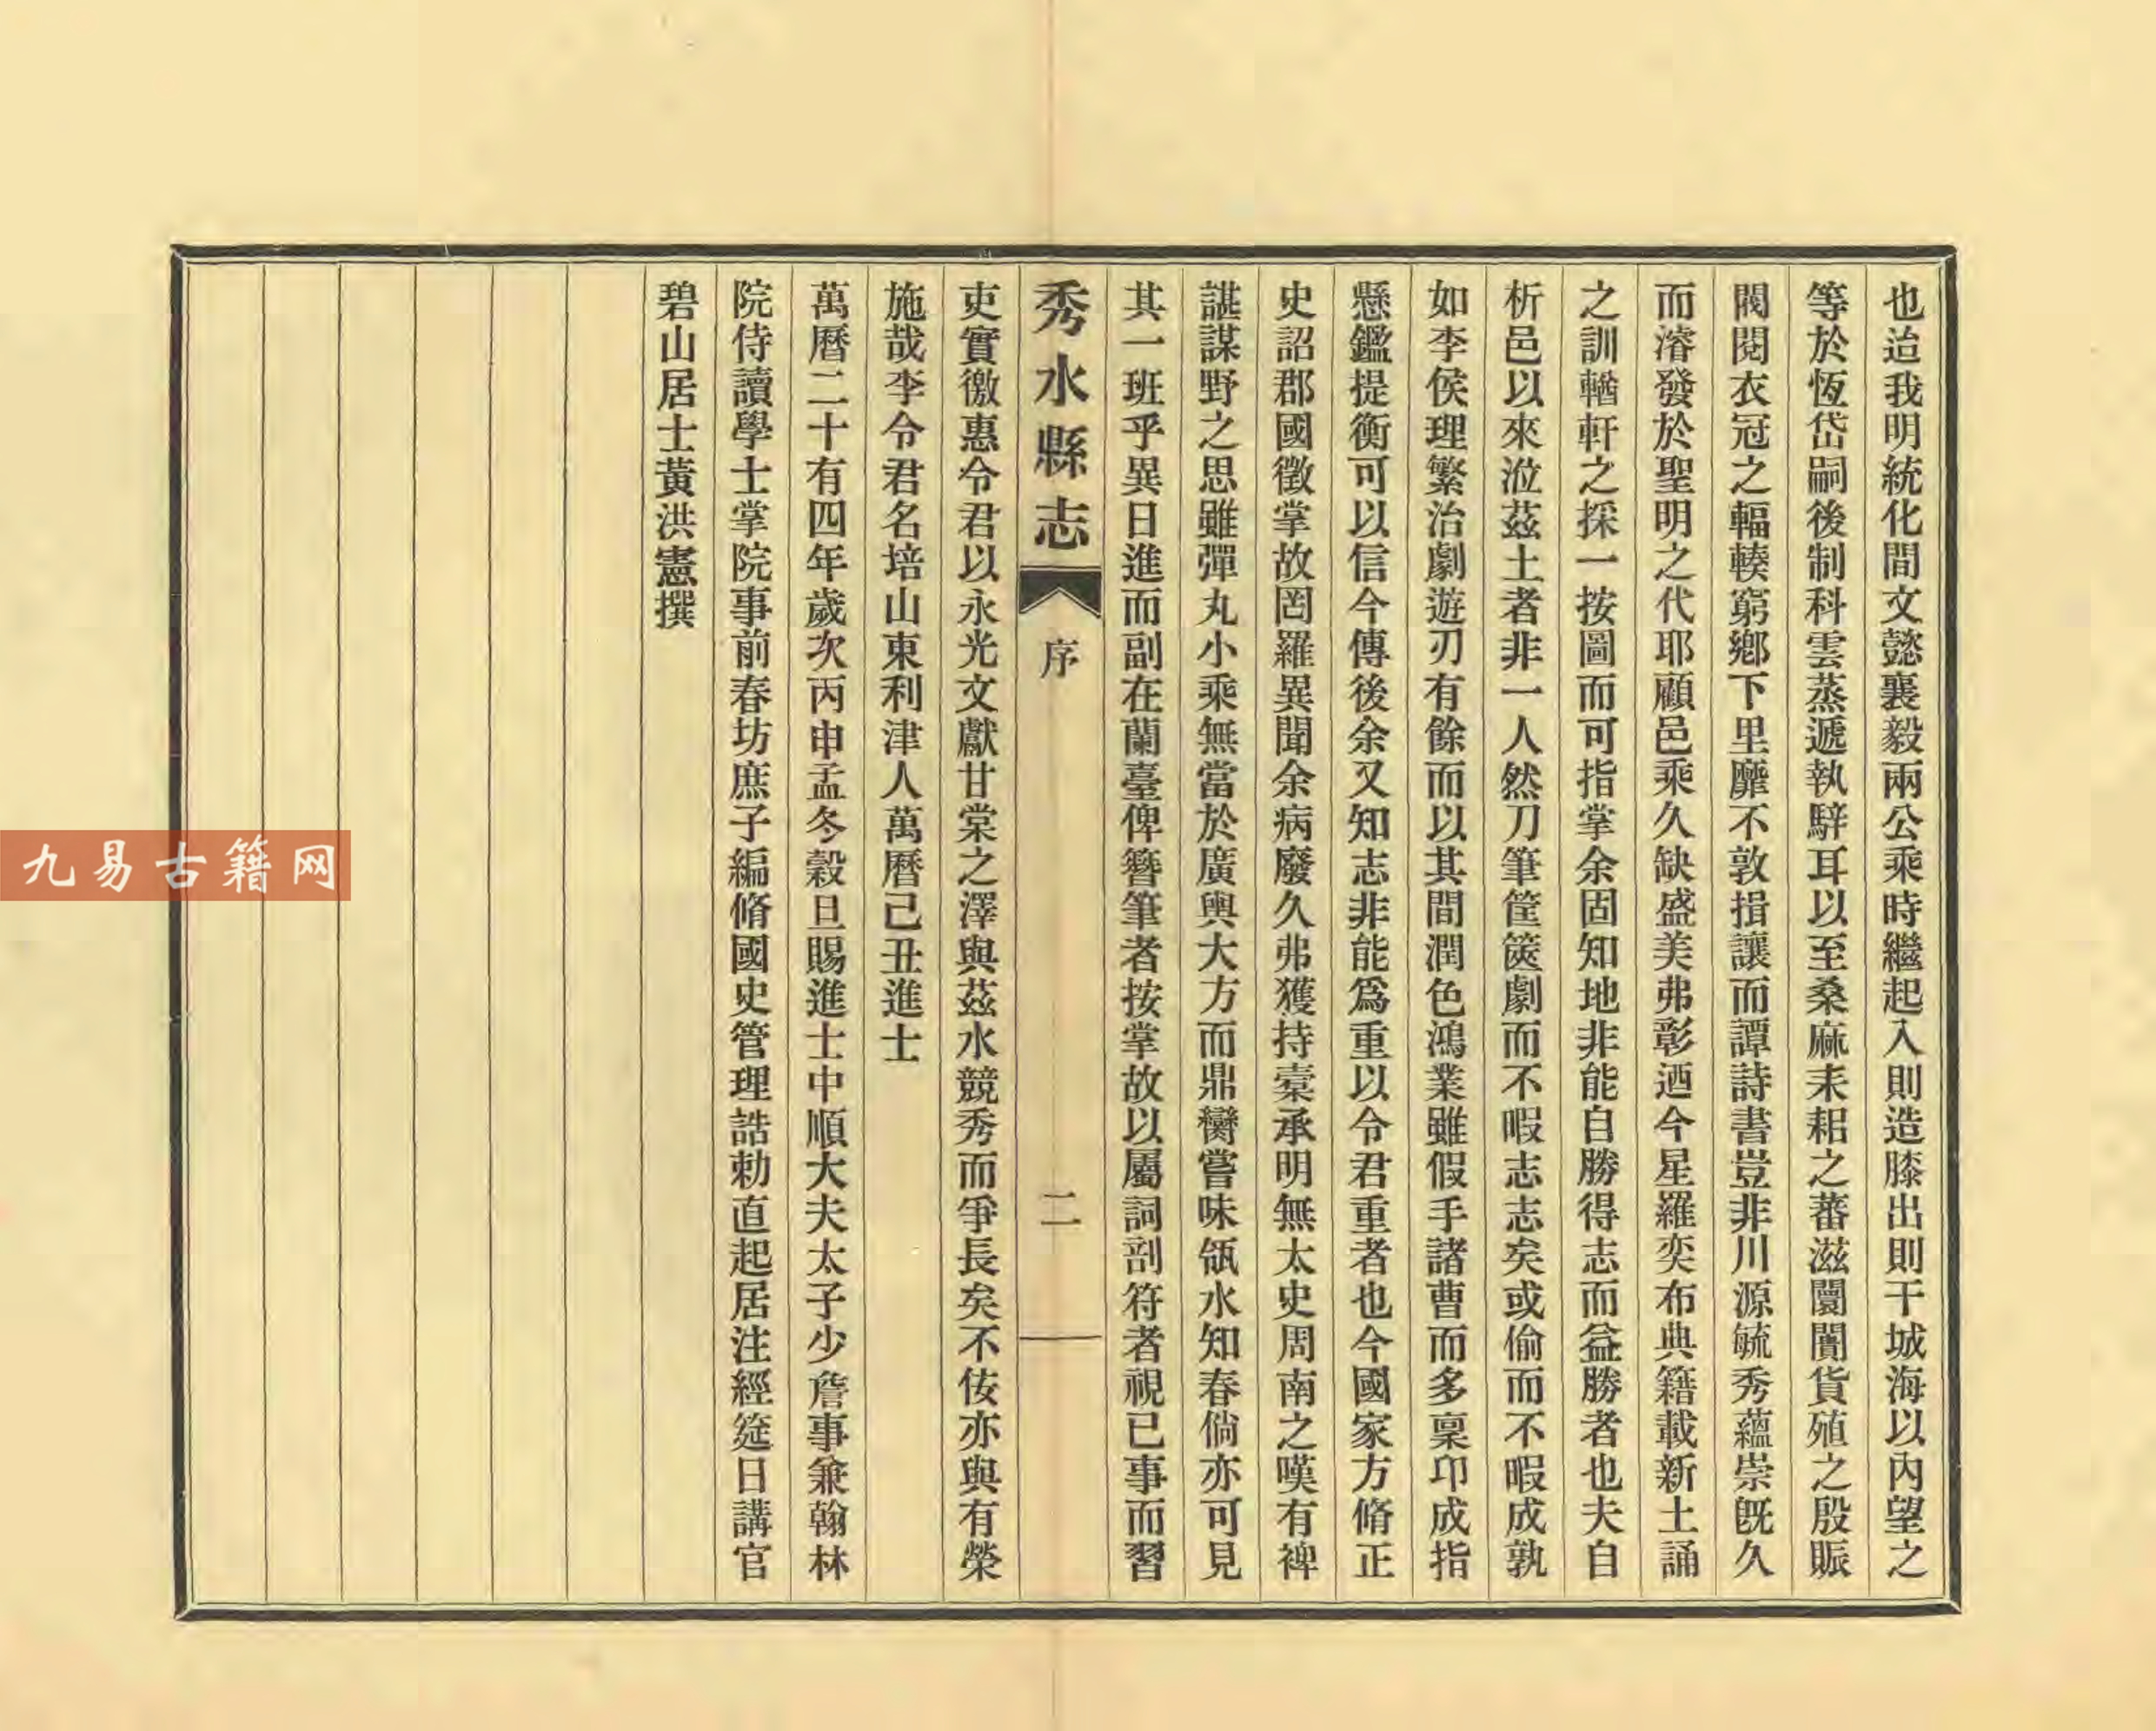 也迨我明統化間文懿襄毅兩公乘時繼起入則造膝出則干城海以內望之
等於恆岱嗣後制科雲蒸遞執騂耳以至桑麻耒耜之蕃滋闤闠貨殖之殷賑
閥閱衣冠之輻輳窮鄉下里靡不敦揖讓而譚詩書豈非川源毓秀蘊崇旣久
而濬發於聖明之代耶顧邑乘久缺盛美弗彰迺今星羅奕布典籍載新土誦
之訓輶軒之採一按圖而可指掌余固知地非能自勝得志而益勝者也夫自
析邑以來涖茲土者非一人然刀筆筐篋劇而不暇志志矣或偷而不暇成孰
如李侯理繁治劇遊刃有餘而以其間潤色鴻業雖假手諸曹而多稟卬成指
懸鑑提衡可以信今傳後余又知志非能爲重以令君重者也今國家方脩正
史詔郡國徵掌故罔羅異聞余病廢久弗獲持槖承明無太史周南之嘆有裨
諶謀野之思雖彈丸小乘無當於廣輿大方而鼎臠嘗味瓴水知春倘亦可見
其一班乎異日進而副在蘭臺俾簪筆者按掌故以屬詞剖符者視已事而習
秀水縣志
序
二
吏實徼惠令君以永光文獻甘棠之澤與茲水競秀而爭長矣不佞亦與有榮
施哉李令君名培山東利津人萬曆己丑進士
萬曆二十有四年歲次丙申孟冬穀旦賜進士中順大夫太子少詹事兼翰林
院侍讀學士掌院事前春坊庶子編脩國史管理誥勅直起居注經筵日講官
碧山居士黃洪憲撰
九易古籍网